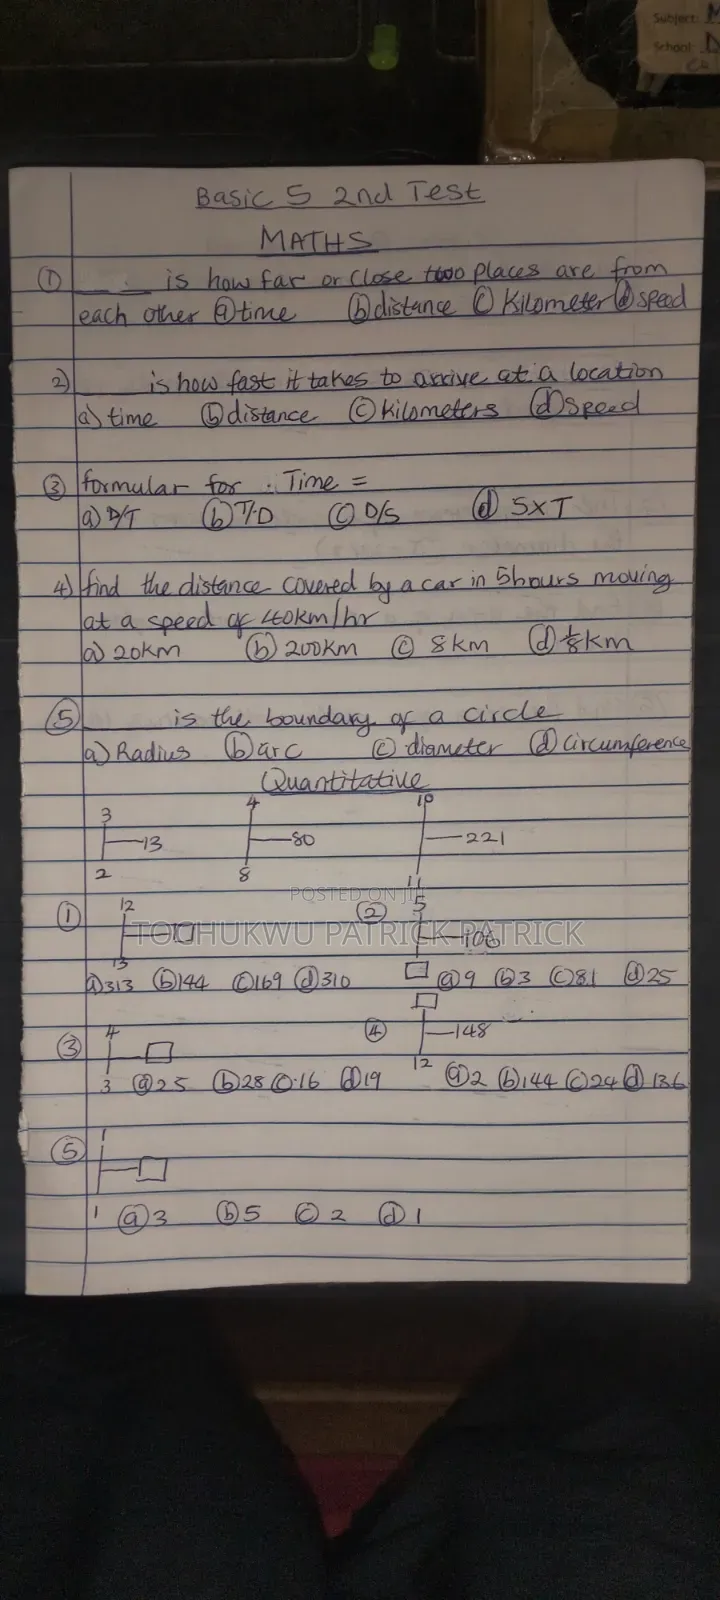 Subject: M
School: D
Basic 5 2nd Test
MATHS
① ___ is how far or close two places are from
each other ⓐ time ⓑ distance ⓒ Kilometer ⓓ speed
2) ___ is how fast it takes to arrive at a location
a) time ⓑ distance ⓒ kilometers ⓓ speed
③ formular for . Time =
a) D/T ⓑ T/D ⓒ D/S ⓓ S×T
4) find the distance covered by a car in 5hours moving
at a speed of 40km/hr
a) 20km ⓑ 200km ⓒ 8km ⓓ 1/8km
⑤ ___ is the boundary of a circle
a) Radius ⓑ arc ⓒ diameter ⓓ circumference
Quantitative
3 4 10
13 80 221
2 8 11
POSTED ON JIJI
① 12 ② 5
TOCHUKWU PATRICK PATRICK
106
13
ⓐ 313 ⓑ 144 ⓒ 169 ⓓ 310 ⓐ 9 ⓑ 3 ⓒ 81 ⓓ 25
③ 4 ④ 148
3 ⓐ 25 ⓑ 28 ⓒ 16 ⓓ 19 12 ⓐ 2 ⓑ 144 ⓒ 24 ⓓ 136
⑤ 1
1 ⓐ 3 ⓑ 5 ⓒ 2 ⓓ 1